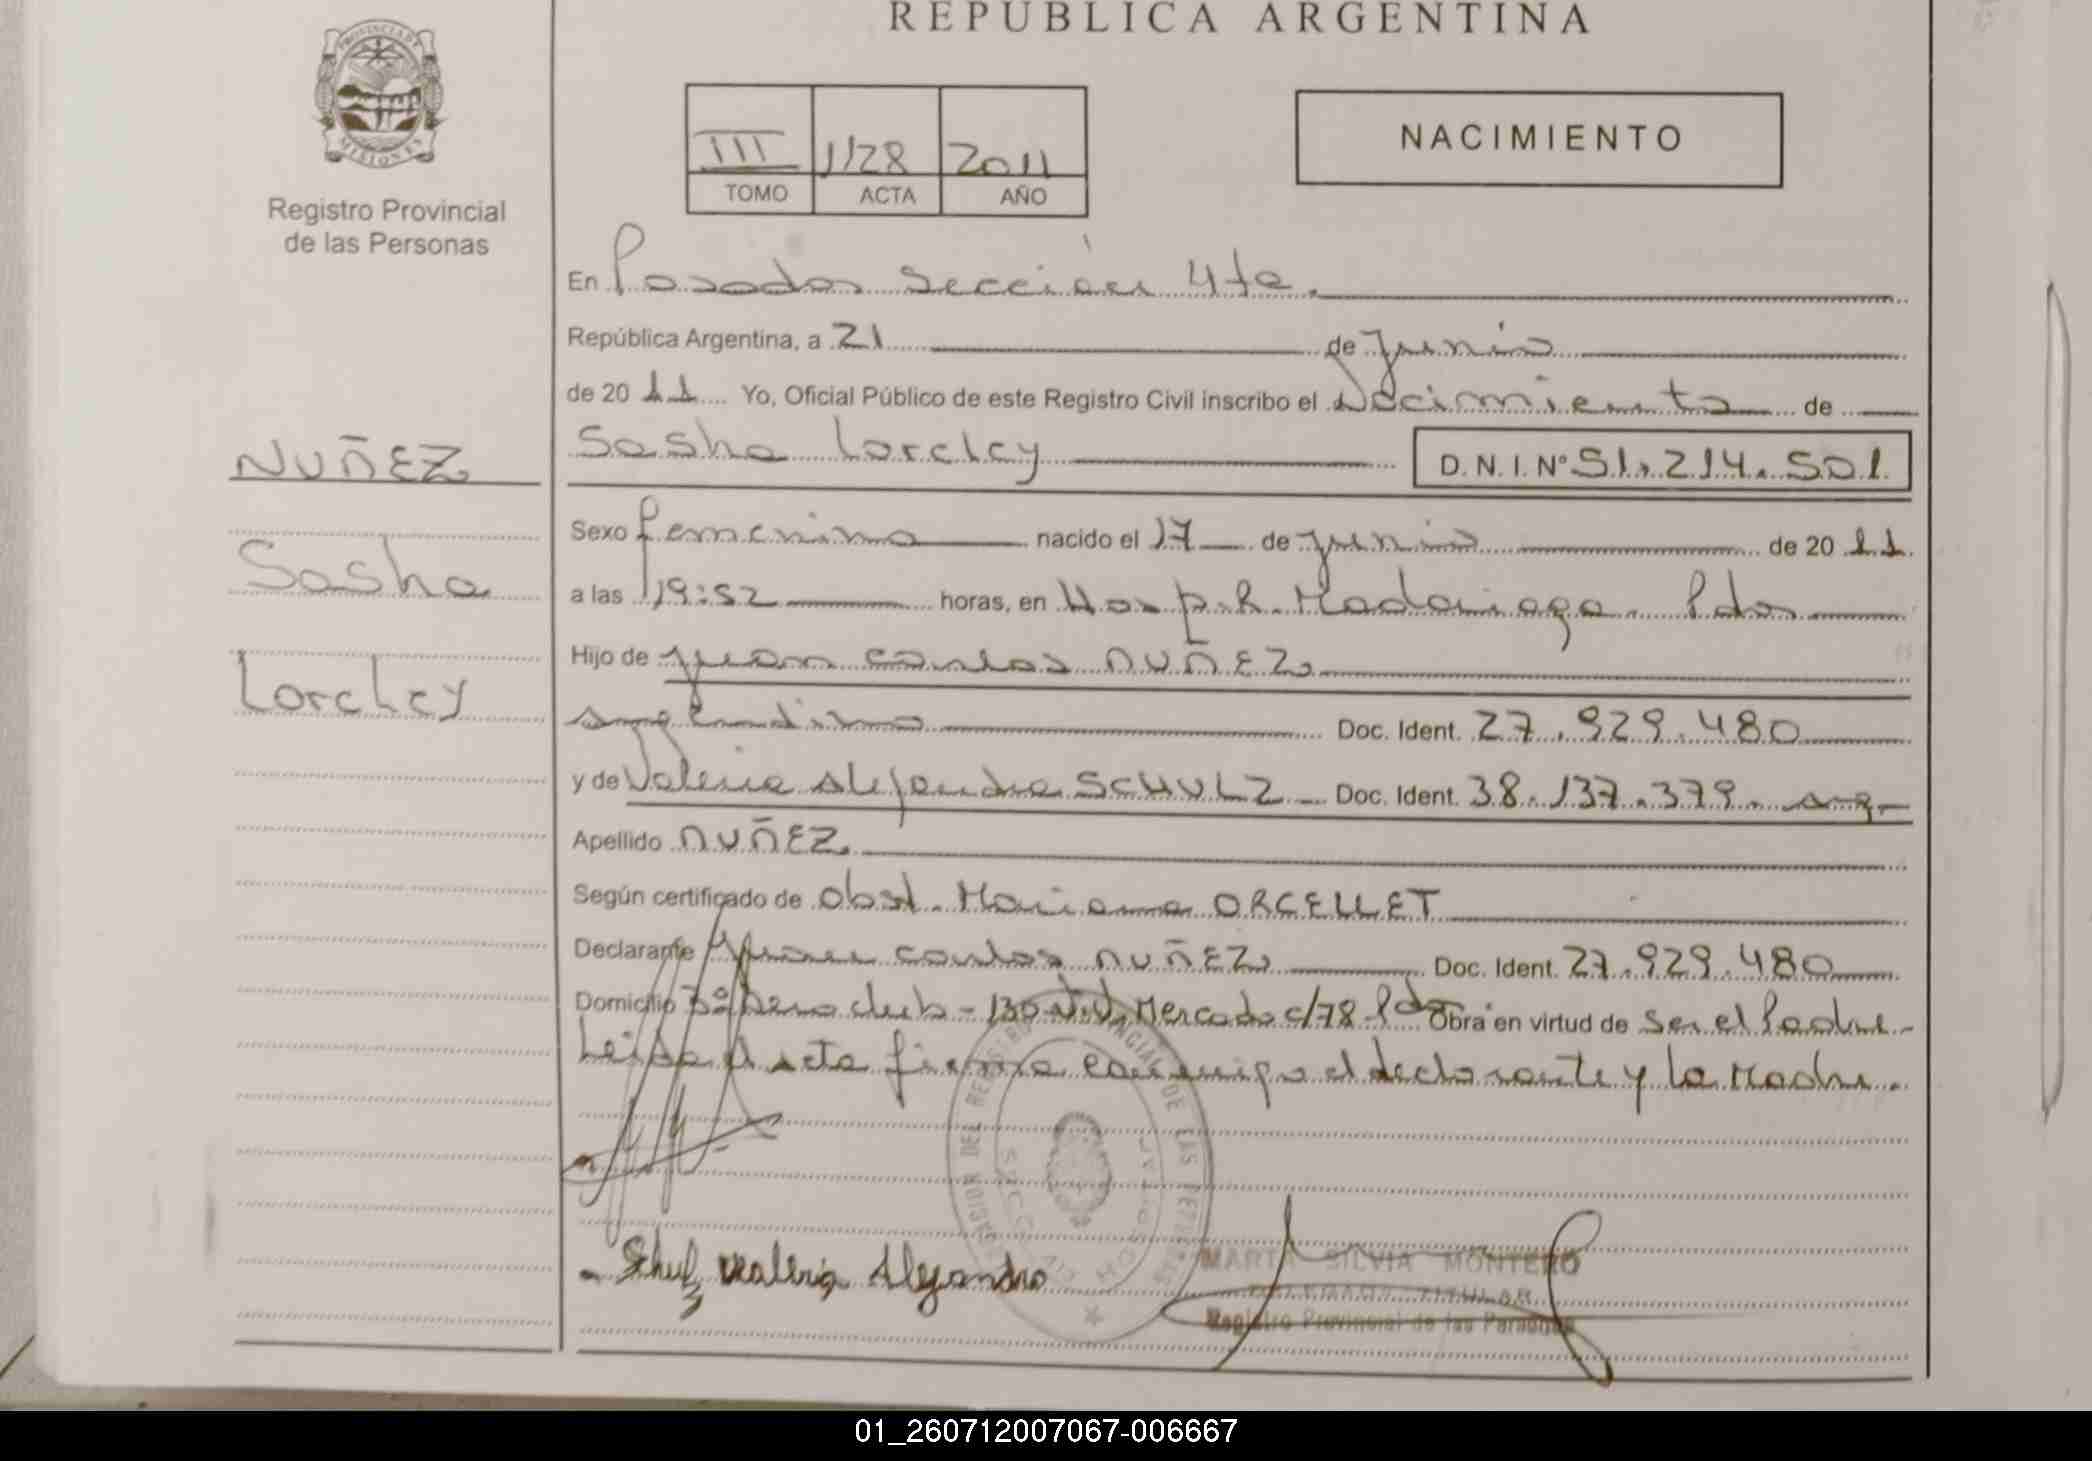 REPUBLICA ARGENTINA
PROVINCIA DE
MISIONES
Registro Provincial
de las Personas
III 1128 2011
TOMO ACTA AÑO
NACIMIENTO
En Posadas Sección 4ta.
República Argentina, a 21 de Junio
de 20 11 Yo, Oficial Público de este Registro Civil inscribo el Nacimiento de
Sasha Loreley D. N. I. Nº 51.214.501
NUÑEZ
Sasha
Loreley
Sexo femenino nacido el 17 de junio de 20 11
a las 19:52 horas, en Hosp. R. Madariaga Pdas
Hijo de Juan Carlos NUÑEZ
argentino Doc. Ident. 27.929.480
y de Valeria Alejandra SCHULZ Doc. Ident. 38.137.379. arg.
Apellido NUÑEZ
Según certificado de Obst. Mariana ORCELLET
Declarante Juan Carlos NUÑEZ Doc. Ident. 27.929.480
Domicilio Bº Aeroclub - 130 Viv. Mercado c/78 Pdas Obra en virtud de Ser el Padre
Leída el acta firma conmigo el declarante y la Madre.
Schulz Valeria Alejandra
MARTA SILVIA MONTERO
TITULAR
Registro Provincial de las Personas
01_260712007067-006667